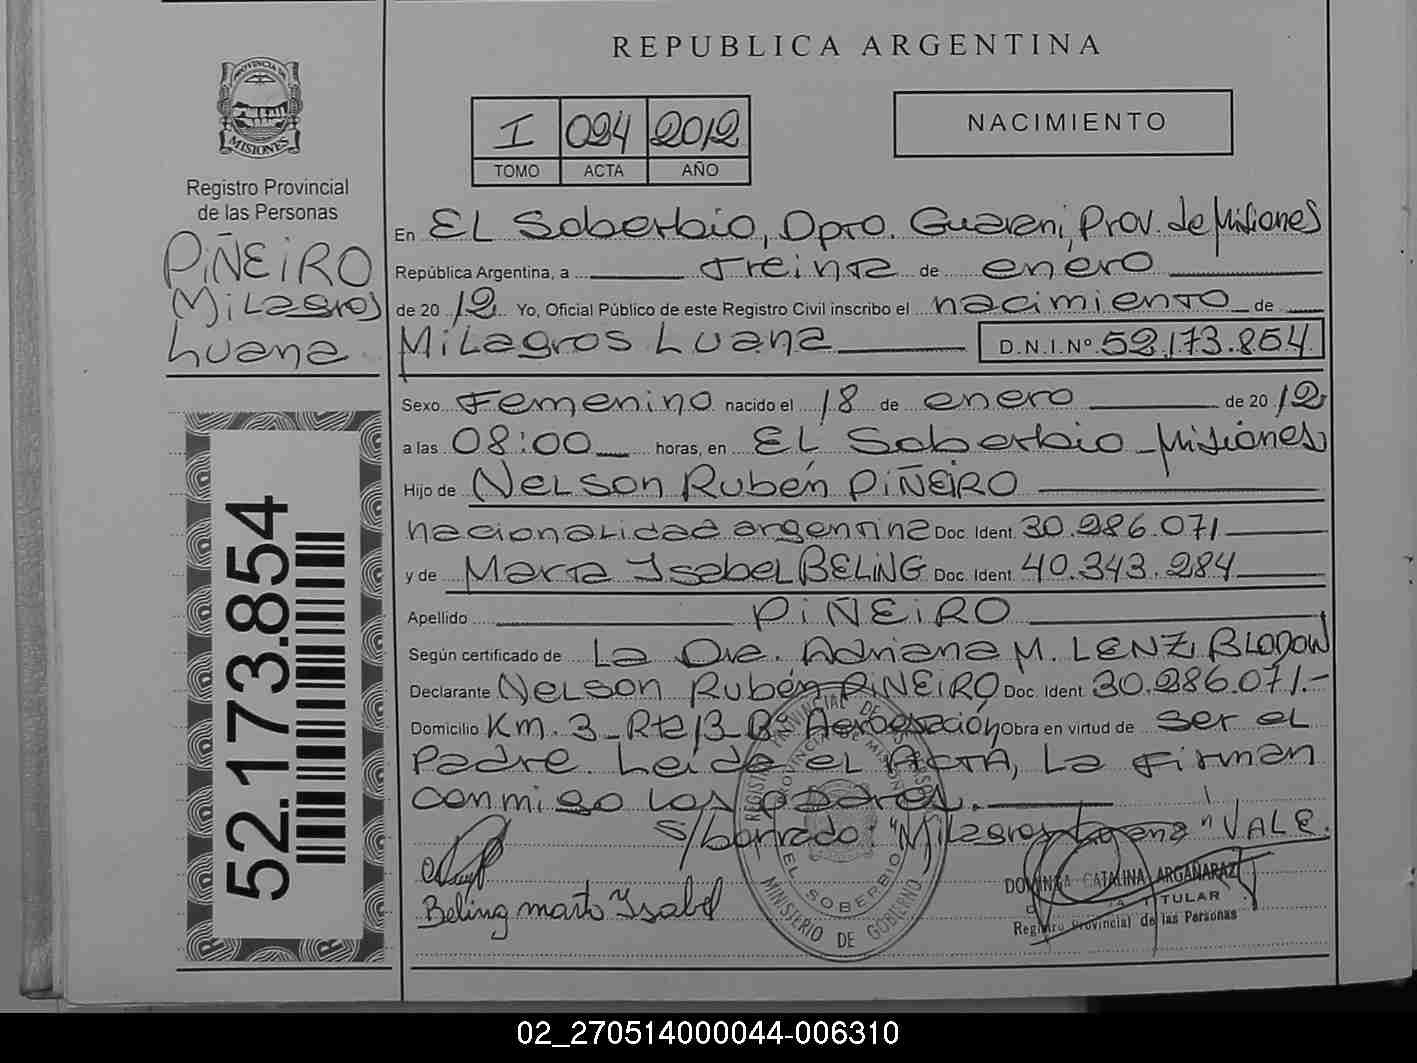 REPUBLICA ARGENTINA
PROVINCIA DE
MISIONES
Registro Provincial
de las Personas
PIÑEIRO
Milagros
Luana
52.173.854
I 024 2012
TOMO ACTA AÑO
NACIMIENTO
En EL Soberbio, Dpto. Guarani, Prov. de Misiones
República Argentina, a treinta de enero
de 20 12 Yo, Oficial Público de este Registro Civil inscribo el nacimiento de
Milagros Luana D.N.I.Nº 52.173.854
Sexo Femenino nacido el 18 de enero de 20 12
a las 08:00 horas, en EL Soberbio - Misiones
Hijo de Nelson Rubén PIÑEIRO
nacionalidad argentina Doc. Ident. 30.286.071
y de Marta Isabel BELING Doc. Ident. 40.343.284
Apellido PIÑEIRO
Según certificado de La Dra. Adriana M. LENZ BLODOW
Declarante Nelson Rubén PIÑEIRO Doc. Ident. 30.286.071.-
Domicilio Km. 3 - Rta 13 - Bº Obra en virtud de ser el
Padre. Leída el ACTA, La firman
conmigo los padres.
s/borrado: "Milagros Luana" VALE.
Beling marta Ysabel
MINISTERIO DE GOBIERNO
EL SOBERBIO
CATALINA ARGAÑARAZ
TITULAR
Registro Provincial de las Personas
02_270514000044-006310